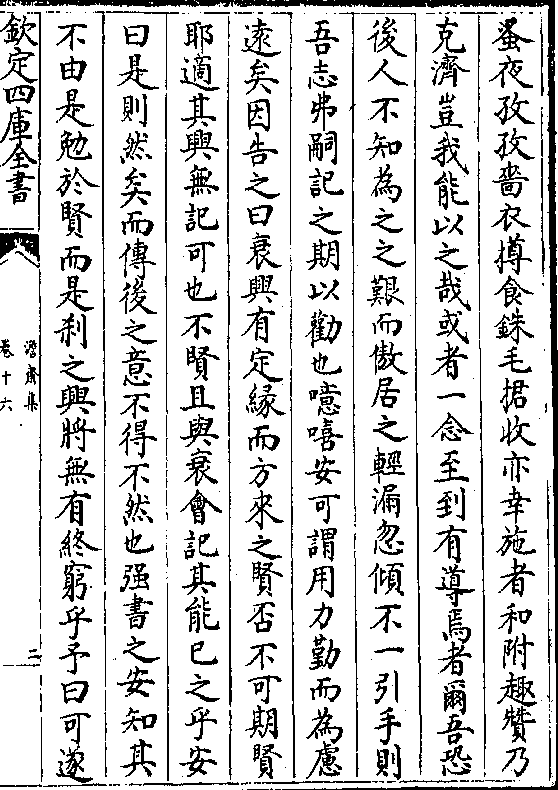 蚤夜孜孜嗇衣撙食銖毛捃收亦幸施者和附趣贊乃
克濟豈我能以之哉或者一念至到有導焉者爾吾恐
後人不知為之之艱而傲居之輕漏忽傾不一引手則
吾志弗嗣記之期以勸也噫嘻安可謂用力勤而為慮
遠矣因告之曰衰興有定緣而方來之賢否不可期賢
耶適其興無記可也不賢且與衰會記其能已之乎安
曰是則然矣而傳後之意不得不然也强書之安知其
不由是勉於賢而是刹之興將無有終窮乎予曰可遂
欽定四庫全書
澹齋集
卷十六
二